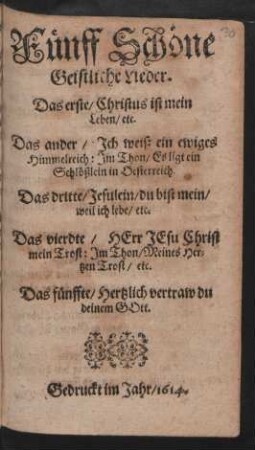 Fünff Schöne
Geistliche Lieder.
Das erste/ Christus ist mein
Leben/ etc.
Das ander/ Ich weiß ein ewiges
Himmelreich: Im Thon/ Es ligt ein
Schlößlein in Oesterreich
Das dritte/ Jesulein/ du bist mein/
weil ich lebe/ etc.
Das vierdte/ HErr JEsu Christ
mein Trost: Im Thon/ Meines Her-
tzen Trost/ etc.
Das fünffte/ Hertzlich vertraw du
deinem GOtt.
Gedruckt im Jahr/ 1614.